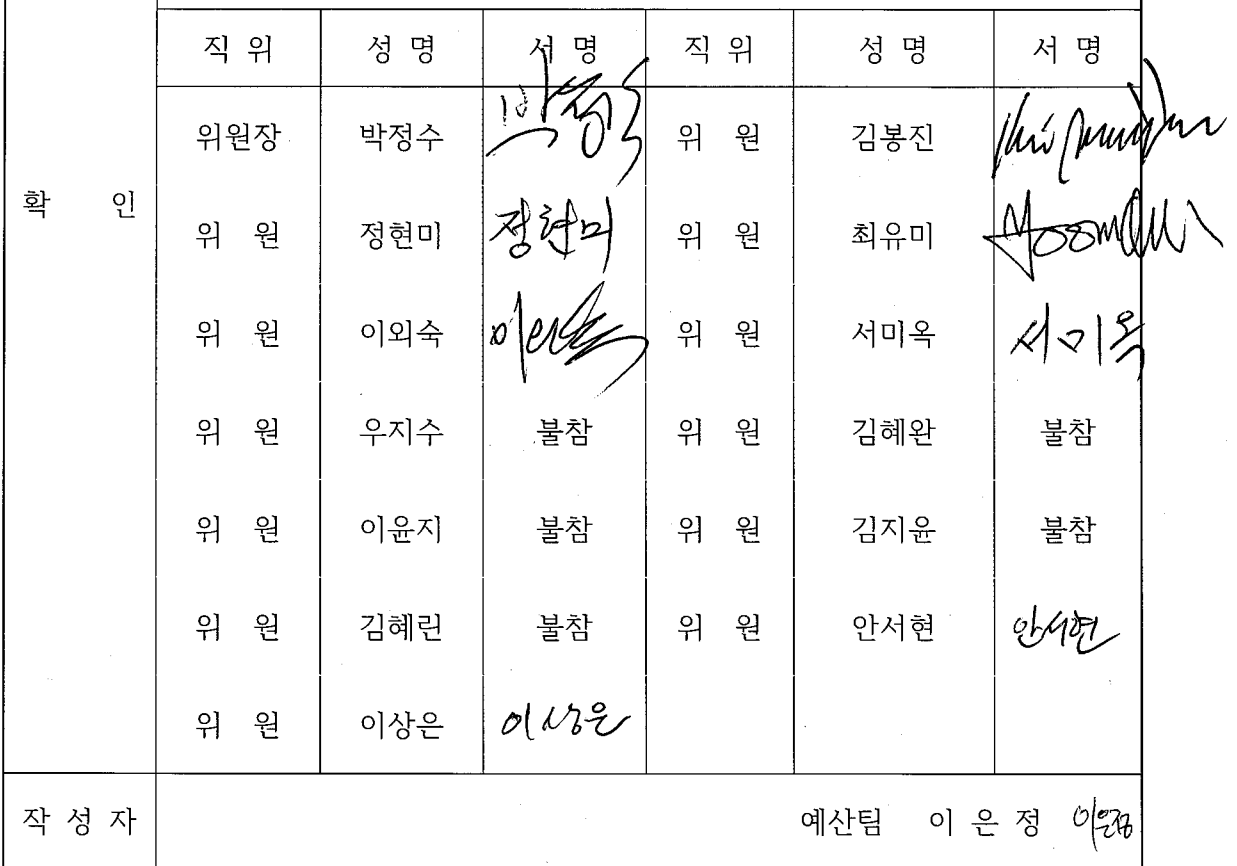 직 위 성 명 서 명 직 위 성 명 서 명
위원장 박정수 위 원 김봉진
확 인
위 원 정현미 정현미 위 원 최유미
위 원 이외숙 위 원 서미옥 서미옥
위 원 우지수 불참 위 원 김혜완 불참
위 원 이윤지 불참 위 원 김지윤 불참
위 원 김혜린 불참 위 원 안서현 안서현
위 원 이상은 이상은
작 성 자 예산팀 이 은 정 이은정